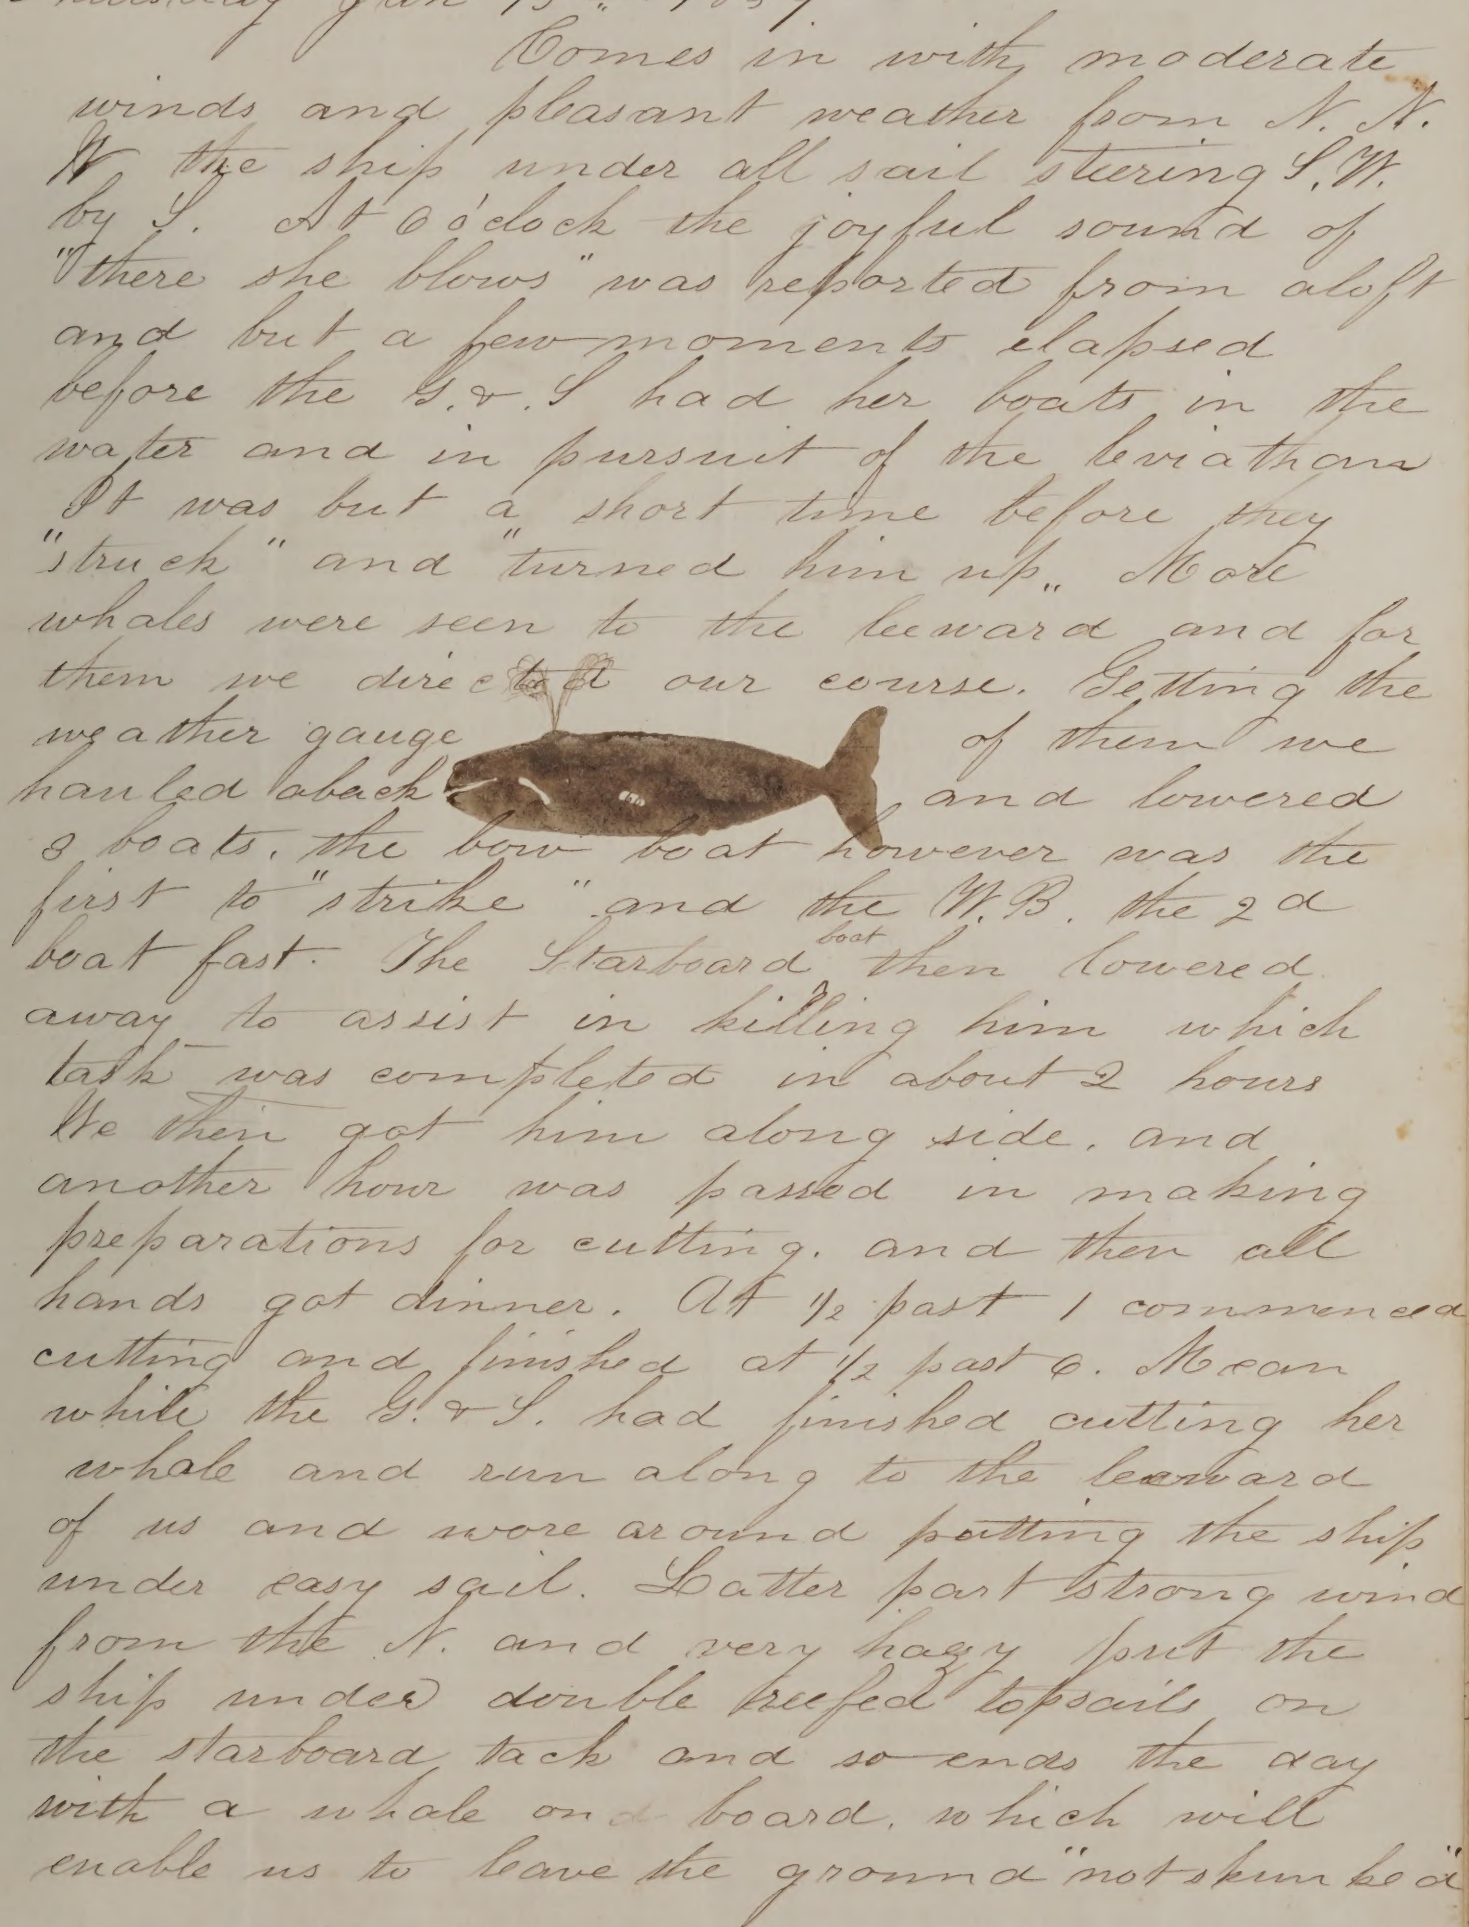 Thursday Jan 13" 1859
Comes in with moderate
winds and pleasant weather from N. N.
W the ship under all sail steering S. W.
by S. At 6 o'clock the joyful sound of
"there she blows" was reported from aloft
and but a few moments elapsed
before the G. & S had her boats in the
water and in pursuit of the leviathan
It was but a short time before they
"struck" and "turned him up„ More
whales were seen to the leeward and for
them we directed our course. Getting the
weather gauge of them we
hauled aback and lowered
3 boats. the bow boat however was the
first to "strike" and the W. B. the 2d
boat fast. The Starboard boat then lowered
away to assist in killing him which
task was completed in about 2 hours
We then got him along side. and
another hour was passed in making
preparations for cutting. and then all
hands got dinner. At 1/2 past 1 commenced
cutting and finished at 1/2 past 6. Mean
while the G. & S. had finished cutting her
whale and run along to the leeward
of us and wore around putting the ship
under easy sail. Latter part strong wind
from the N. and very hazy put the
ship under double reefed topsails on
the starboard tack and so ends the day
with a whale on board. which will
enable us to leave the ground "not skunked"